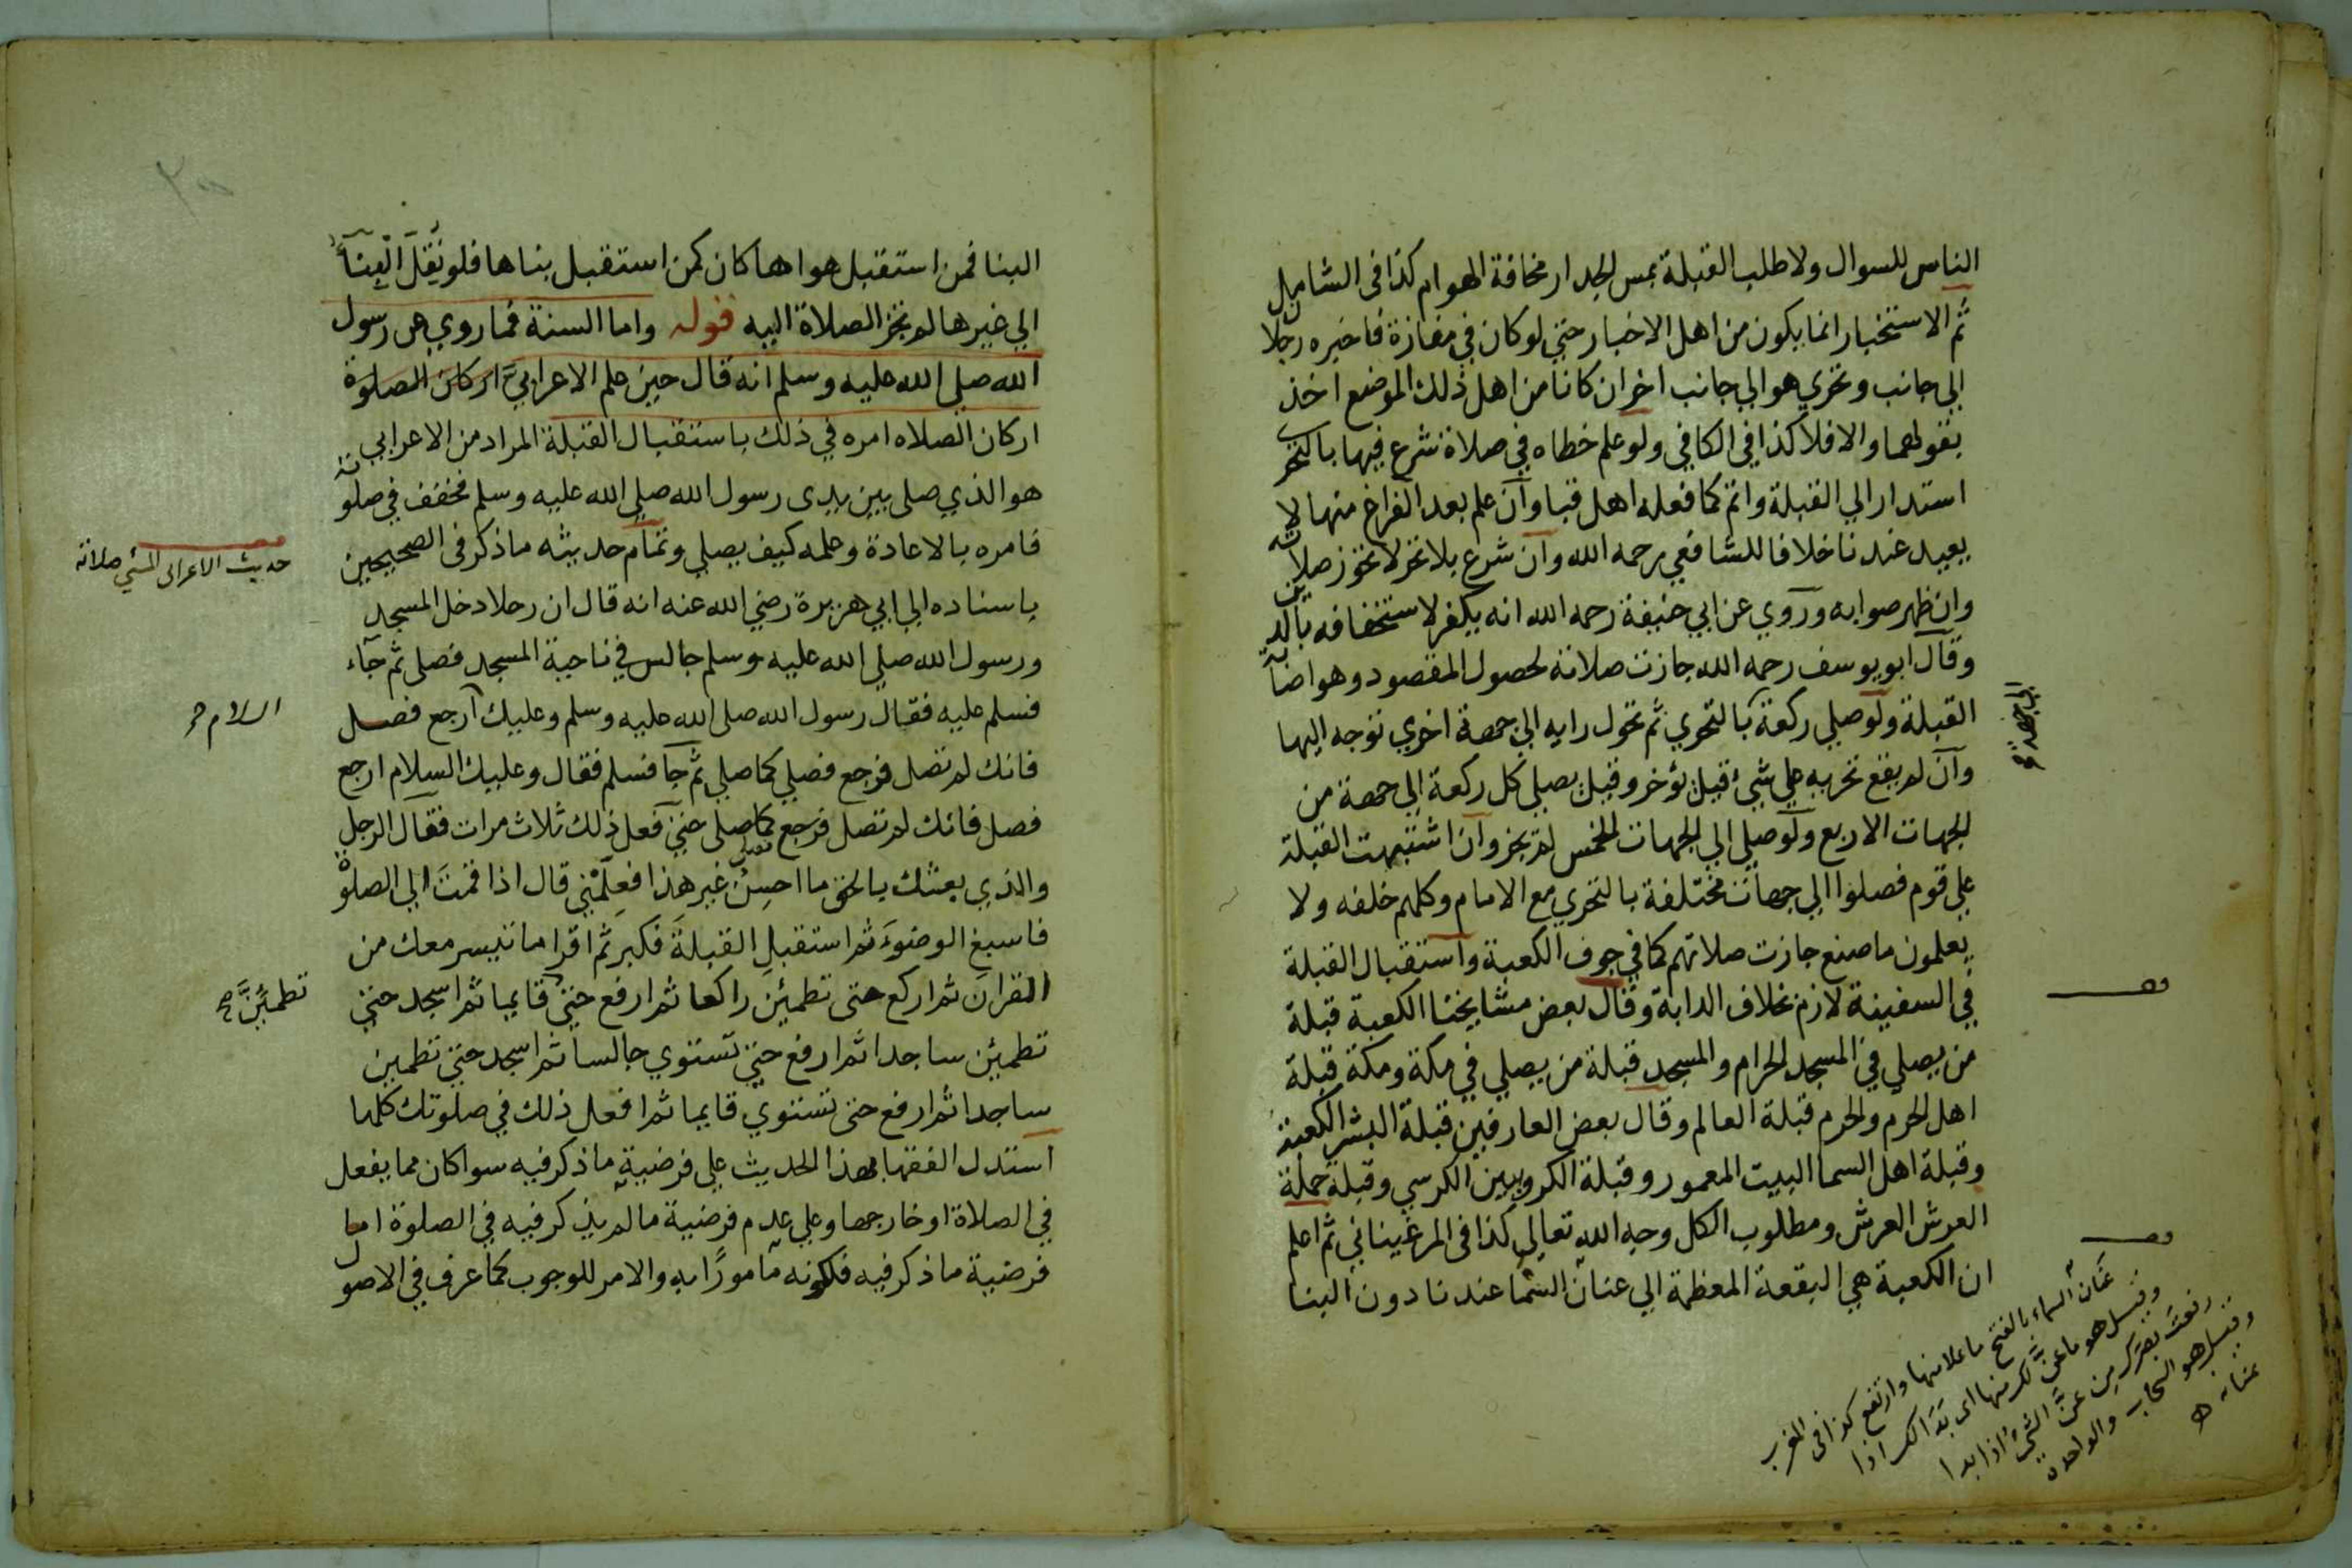 الناس للسوال ولا طلب القبلة بمس الجدار مخافة الهوام كذا فى الشامل
ثم الاستخبار انما يكون من اهل الاخبار حتي لو كان في مفازة فاخبره رجلان
الي جانب وتحري هو الي جانب اخر ان كانا من اهل ذلك الموضع اخذ
بقولهما والا فلا كذا في الكافي ولو علم خطاه في صلاة شرع فيها بالتحري
استدار الي القبلة واتم كما فعله اهل قبا وان علم بعد الفراغ منها لا
يعيد عندنا خلافا للشافعي رحمه الله وان شرع بلا تحر لا تجوز صلاته
وان ظهر صوابه وروي عن ابي حنيفة رحمه الله انه يكفر لاستخفافه بالدين
وقال ابو يوسف رحمه الله جازت صلاته لحصول المقصود وهو اصابة
القبلة ولو صلي ركعة بالتحري ثم تحول رايه الي جهة اخري توجه اليها
وان لم يقع تحريه علي شيء قيل يؤخر وقيل يصلي كل ركعة الي جهة من
الجهات الاربع ولو صلي الي الجهات الخمس لم يجز وان اشتبهت القبلة
علي قوم فصلوا الي جهات مختلفة بالتحري مع الامام وكلهم خلفه ولا
يعلمون ما صنع جازت صلاتهم كما في جوف الكعبة واستقبال القبلة
في السفينة لازم بخلاف الدابة وقال بعض مشايخنا الكعبة قبلة
من يصلي في المسجد الحرام والمسجد قبلة من يصلي في مكة ومكة قبلة
اهل الحرم والحرم قبلة العالم وقال بعض العارفين قبلة البشر الكعبة
وقبلة اهل السما البيت المعمور وقبلة الكروبيين الكرسي وقبلة حملة
العرش العرش ومطلوب الكل وجه الله تعالي كذا فى المرغيناني ثم اعلم
ان الكعبة هي البقعة المعظمة الي عنان السما عندنا دون البنا
الي جهة
عنان السماء بالفتح ما علا منها وارتفع كذا فى المغرب
وقيل هو ما عنّ لك منها اى بدا لك اذا
رفعت بصرك من عنّ الشئ اذا بدا
وقيل هو السحاب والواحدة
عنانه
البنا فمن استقبل هواها كان كمن استقبل بناها فلو نقل البنا
الي غيرها لم تجز الصلاة اليه قوله واما السنة فما روي عن رسول
الله صلي الله عليه وسلم انه قال حين علم الاعرابي اركان الصلوة
اركان الصلاه امره في ذلك باستقبال القبلة المراد من الاعرابي
هو الذي صلى بين يدى رسول الله صلي الله عليه وسلم فخفف في صلوته
فامره بالاعادة وعلمه كيف يصلي وتمام حديثه ما ذكر فى الصحيحين
باسناده الي ابي هريرة رضي الله عنه انه قال ان رجلا دخل المسجد
ورسول الله صلي الله عليه وسلم جالس في ناحية المسجد فصلى ثم جاء
فسلم عليه فقال رسول الله صلى الله عليه وسلم وعليك ارجع فصل
فانك لم تصل فرجع فصلي كما صلي ثم جا فسلم فقال وعليك السلام ارجع
فصل فانك لم تصل فرجع كما صلى حتي فعل ذلك ثلاث مرات فقال الرجل
والذي بعثك بالحق ما احسن غير هذا فعلمني قال اذا قمت الي الصلوة
فاسبغ الوضوء ثم استقبل القبلة فكبر ثم اقرا ما تيسر معك من
القران ثم اركع حتى تطمئن راكعا ثم ارفع حتي قايما ثم اسجد حتي
تطمئن ساجدا ثم ارفع حتي تستوي جالسا ثم اسجد حتي تطمين
ساجدا ثم ارفع حتى تستوي قايما ثم افعل ذلك في صلوتك كلها
استدل الفقها بهذا الحديث علي فرضية ما ذكر فيه سوا كان مما يفعل
في الصلاة او خارجها وعلي عدم فرضية ما لم يذكر فيه في الصلوة اما
فرضية ما ذكر فيه فلكونه مامورا به والامر للوجوب كما عرف في الاصول
حديث الاعرابى المسئ صلاته
السلام
تطمئن